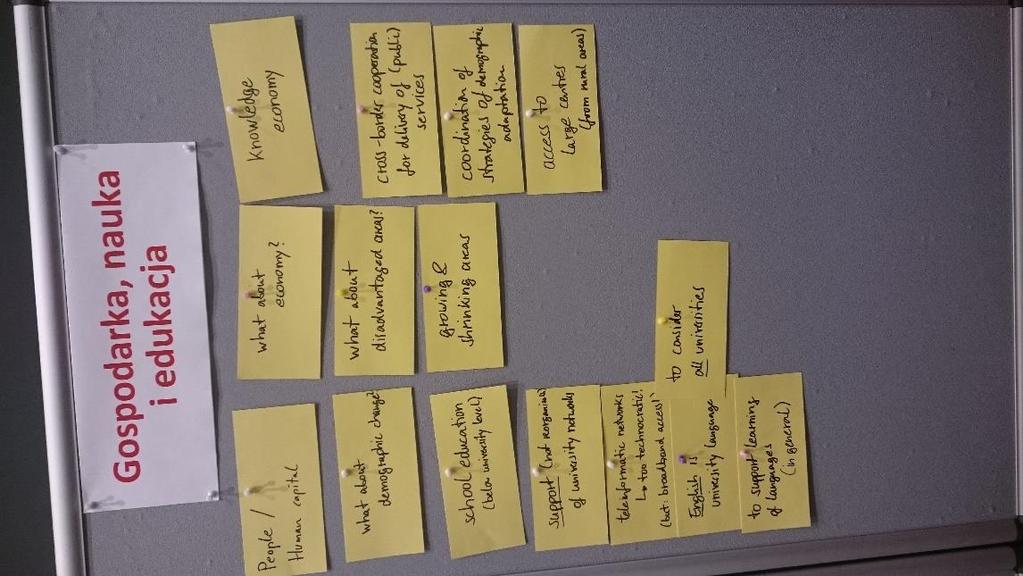 Gospodarka, nauka
i edukacja
People /
Human capital
what about
demographic change?
school education
(below university level)
support (not reorganise)
of university networks
teleinformatic networks
↳ too technocratic!
(but: broadband access!)
English is
university language
to support learning
of languages
(in general)
to consider
all universities
what about
economy?
what about
disadvantaged areas?
growing &
shrinking areas
Knowledge
economy
cross-border cooperation
for delivery of (public)
services
coordination of
strategies of demographic
adaptation
access to
large centres
(from rural areas)